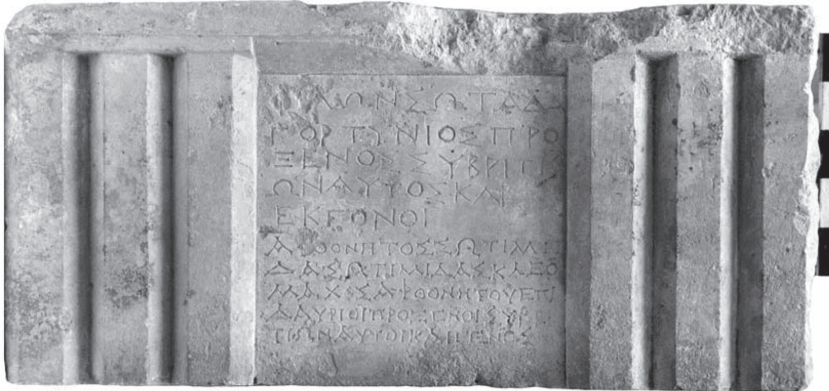 ΣΩΤΑΔΑ
ΓΟΡΤΥΝΙΟΣΠΡΟ
ΞΕΝΟΣΣΥΒΡΙΤΙ
ΩΝΑΥΤΟΣΚΑΙ
ΕΚΓΟΝΟΙ
ΑΦΘΟΝΗΤΟΣΣΩΤΙΜΙ
ΔΑΣΩΤΙΜΙΔΑΣΚΛΕΟ
ΜΑΧΟΣΑΦΘΟΝΗΤΟΥΕΠΙ
ΔΑΥΡΙΟΙΠΡΟΞΕΝΟΙΣΥΒΡΙ
ΤΙΩΝΑΥΤΟΙΚΑΙΓΕΝΟΣ